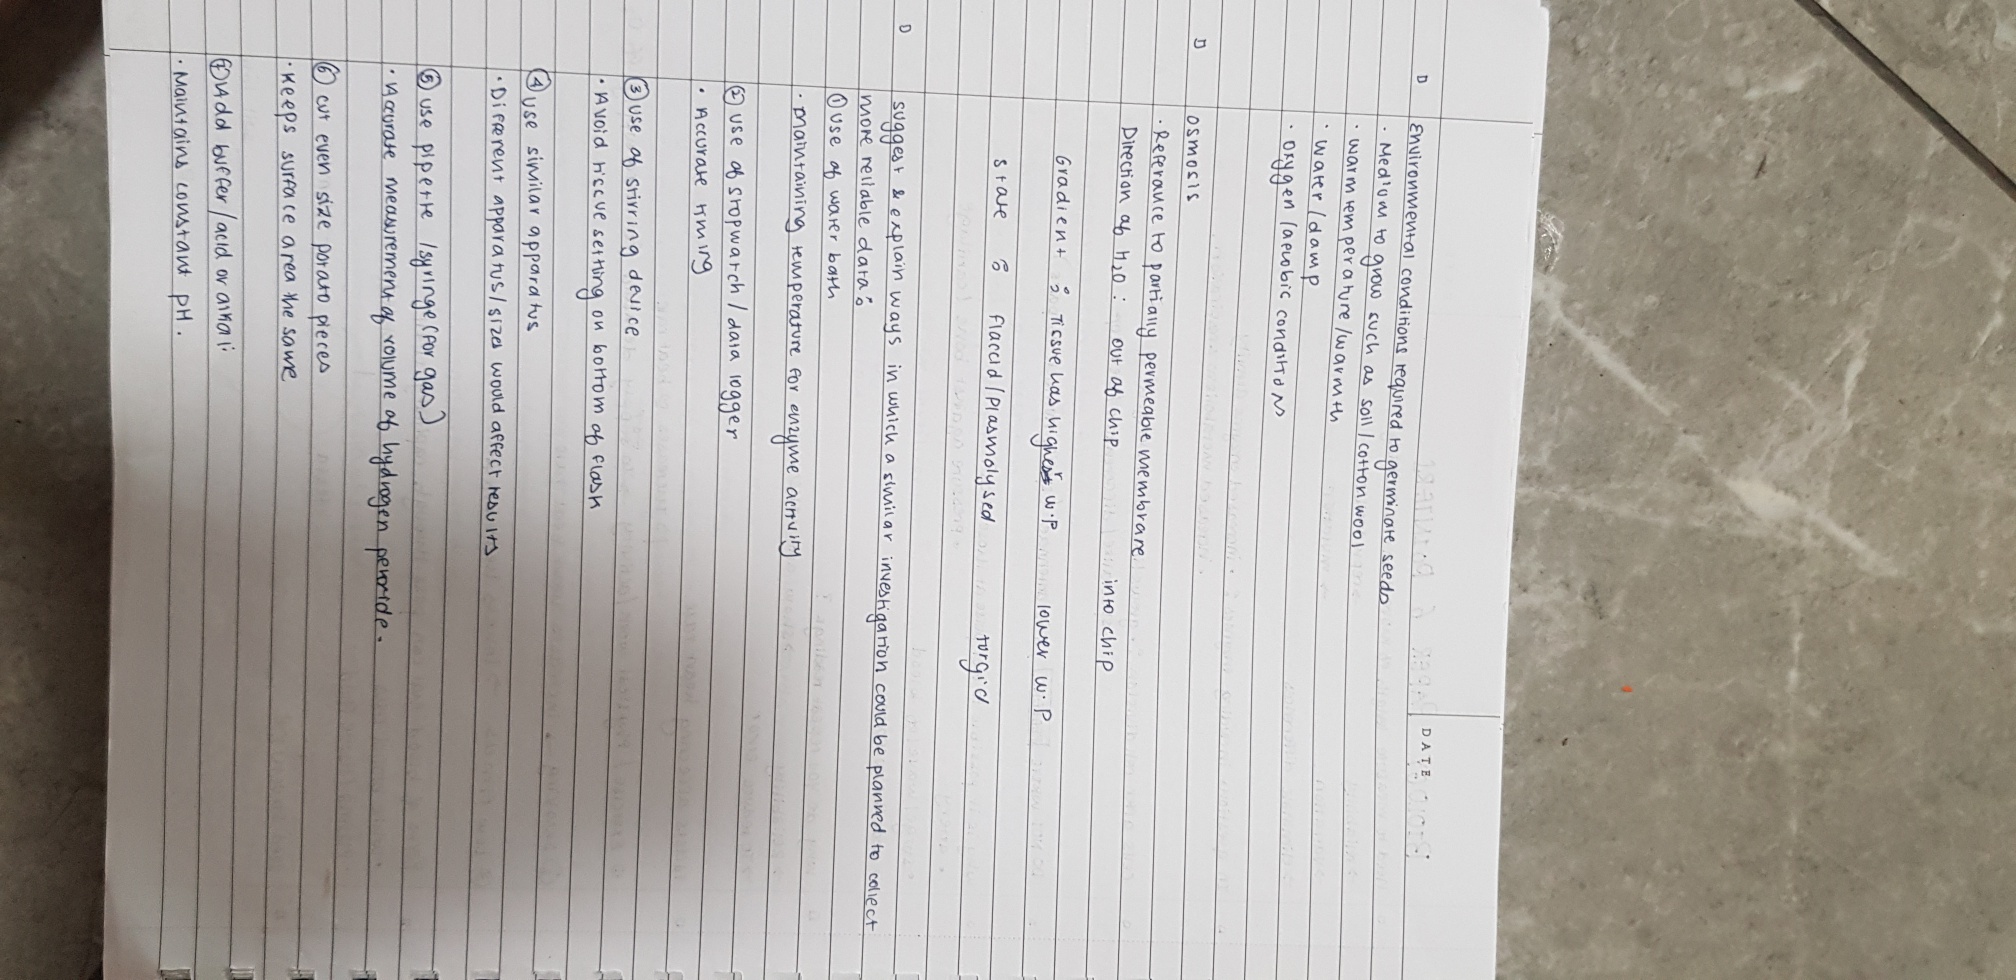 DATE
D Environmental conditions required to germinate seeds
· Medium to grow such as soil/cotton wool
· warm temperature/warmth
· water/damp
· oxygen/aerobic condition
D osmosis
· Referance to partially permeable membrane
Direction of H2O: out of chip into chip
Gradient : Tissue has higher w.p lower w.p
State : flaccid/plasmolysed turgid
D suggest & explain ways in which a similar investigation could be planned to collect
more reliable data:
① use of water bath
· maintaining temperature for enzyme activity
② use of stopwatch/data logger
· Accurate timing
③ use of stiring device
· Avoid tissue setting on bottom of flask
④ use similar apparatus
· Different apparatus/sizes would affect results
⑤ use pipette/syringe (for gas)
· Accurate measurement of volume of hydrogen peroxide.
⑥ cut even size potato pieces
· Keeps surface area the same
⑦ Add buffer/acid or alkali
· Maintains constant pH.